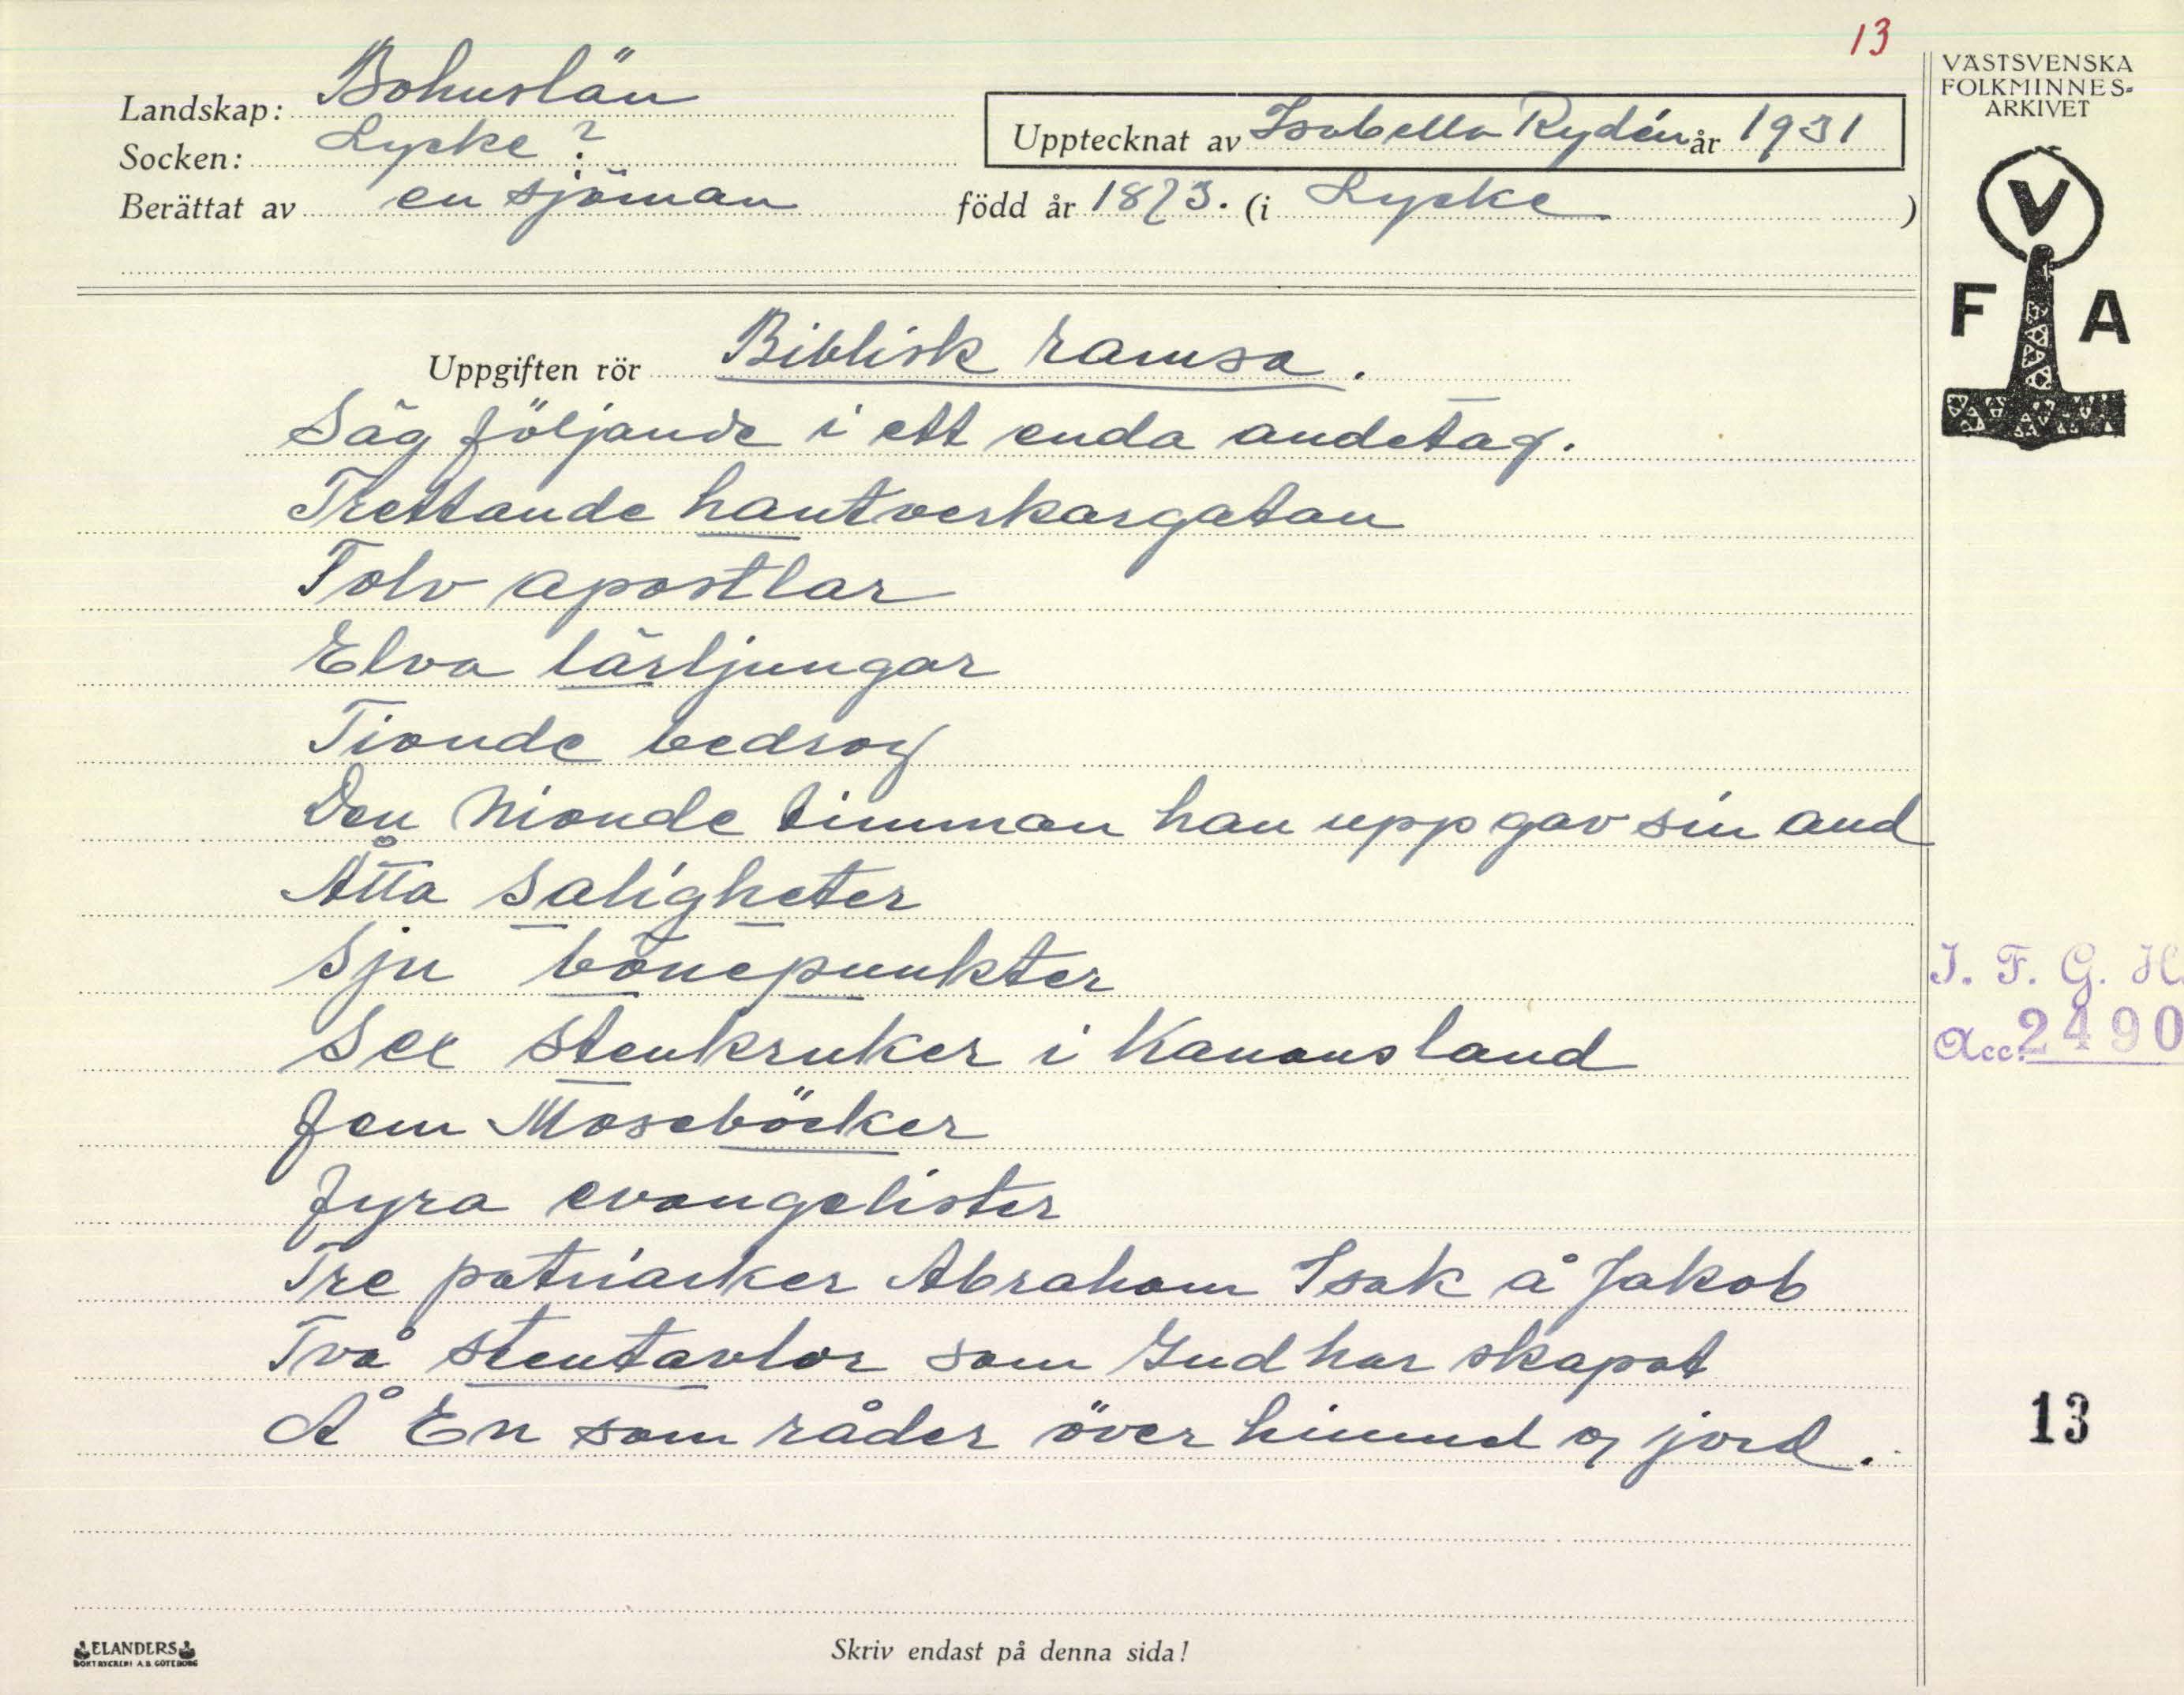 13
VÄSTSVENSKA
FOLKMINNES-
ARKIVET
Landskap: Bohuslän
Upptecknat av Isabella Rydén år 1931
Socken: Lycke ?
Berättat av en sjöman född år 1873. (i Lycke )
V
F A
Uppgiften rör Biblisk ramsa.
Säg följande i ett enda andetag.
Trettande hantverkargatan
Tolv apostlar
Elva lärljungar
Tionde bedrog
Den nionde timman han uppgav sin and
Åtta saligheter
Sju bönepunkter
Sex stenkruker i Kanansland
Fem Moseböcker
Fyra evangelister
Tre patriarker Abraham Isak å Jakob
Två stentavlor som Gud har skapat
Å En som råder över himmel og jord.
I. F. G. H.
Acc. 2490
13
ELANDERS
BOKTRYCKERI A.B. GÖTEBORG
Skriv endast på denna sida!